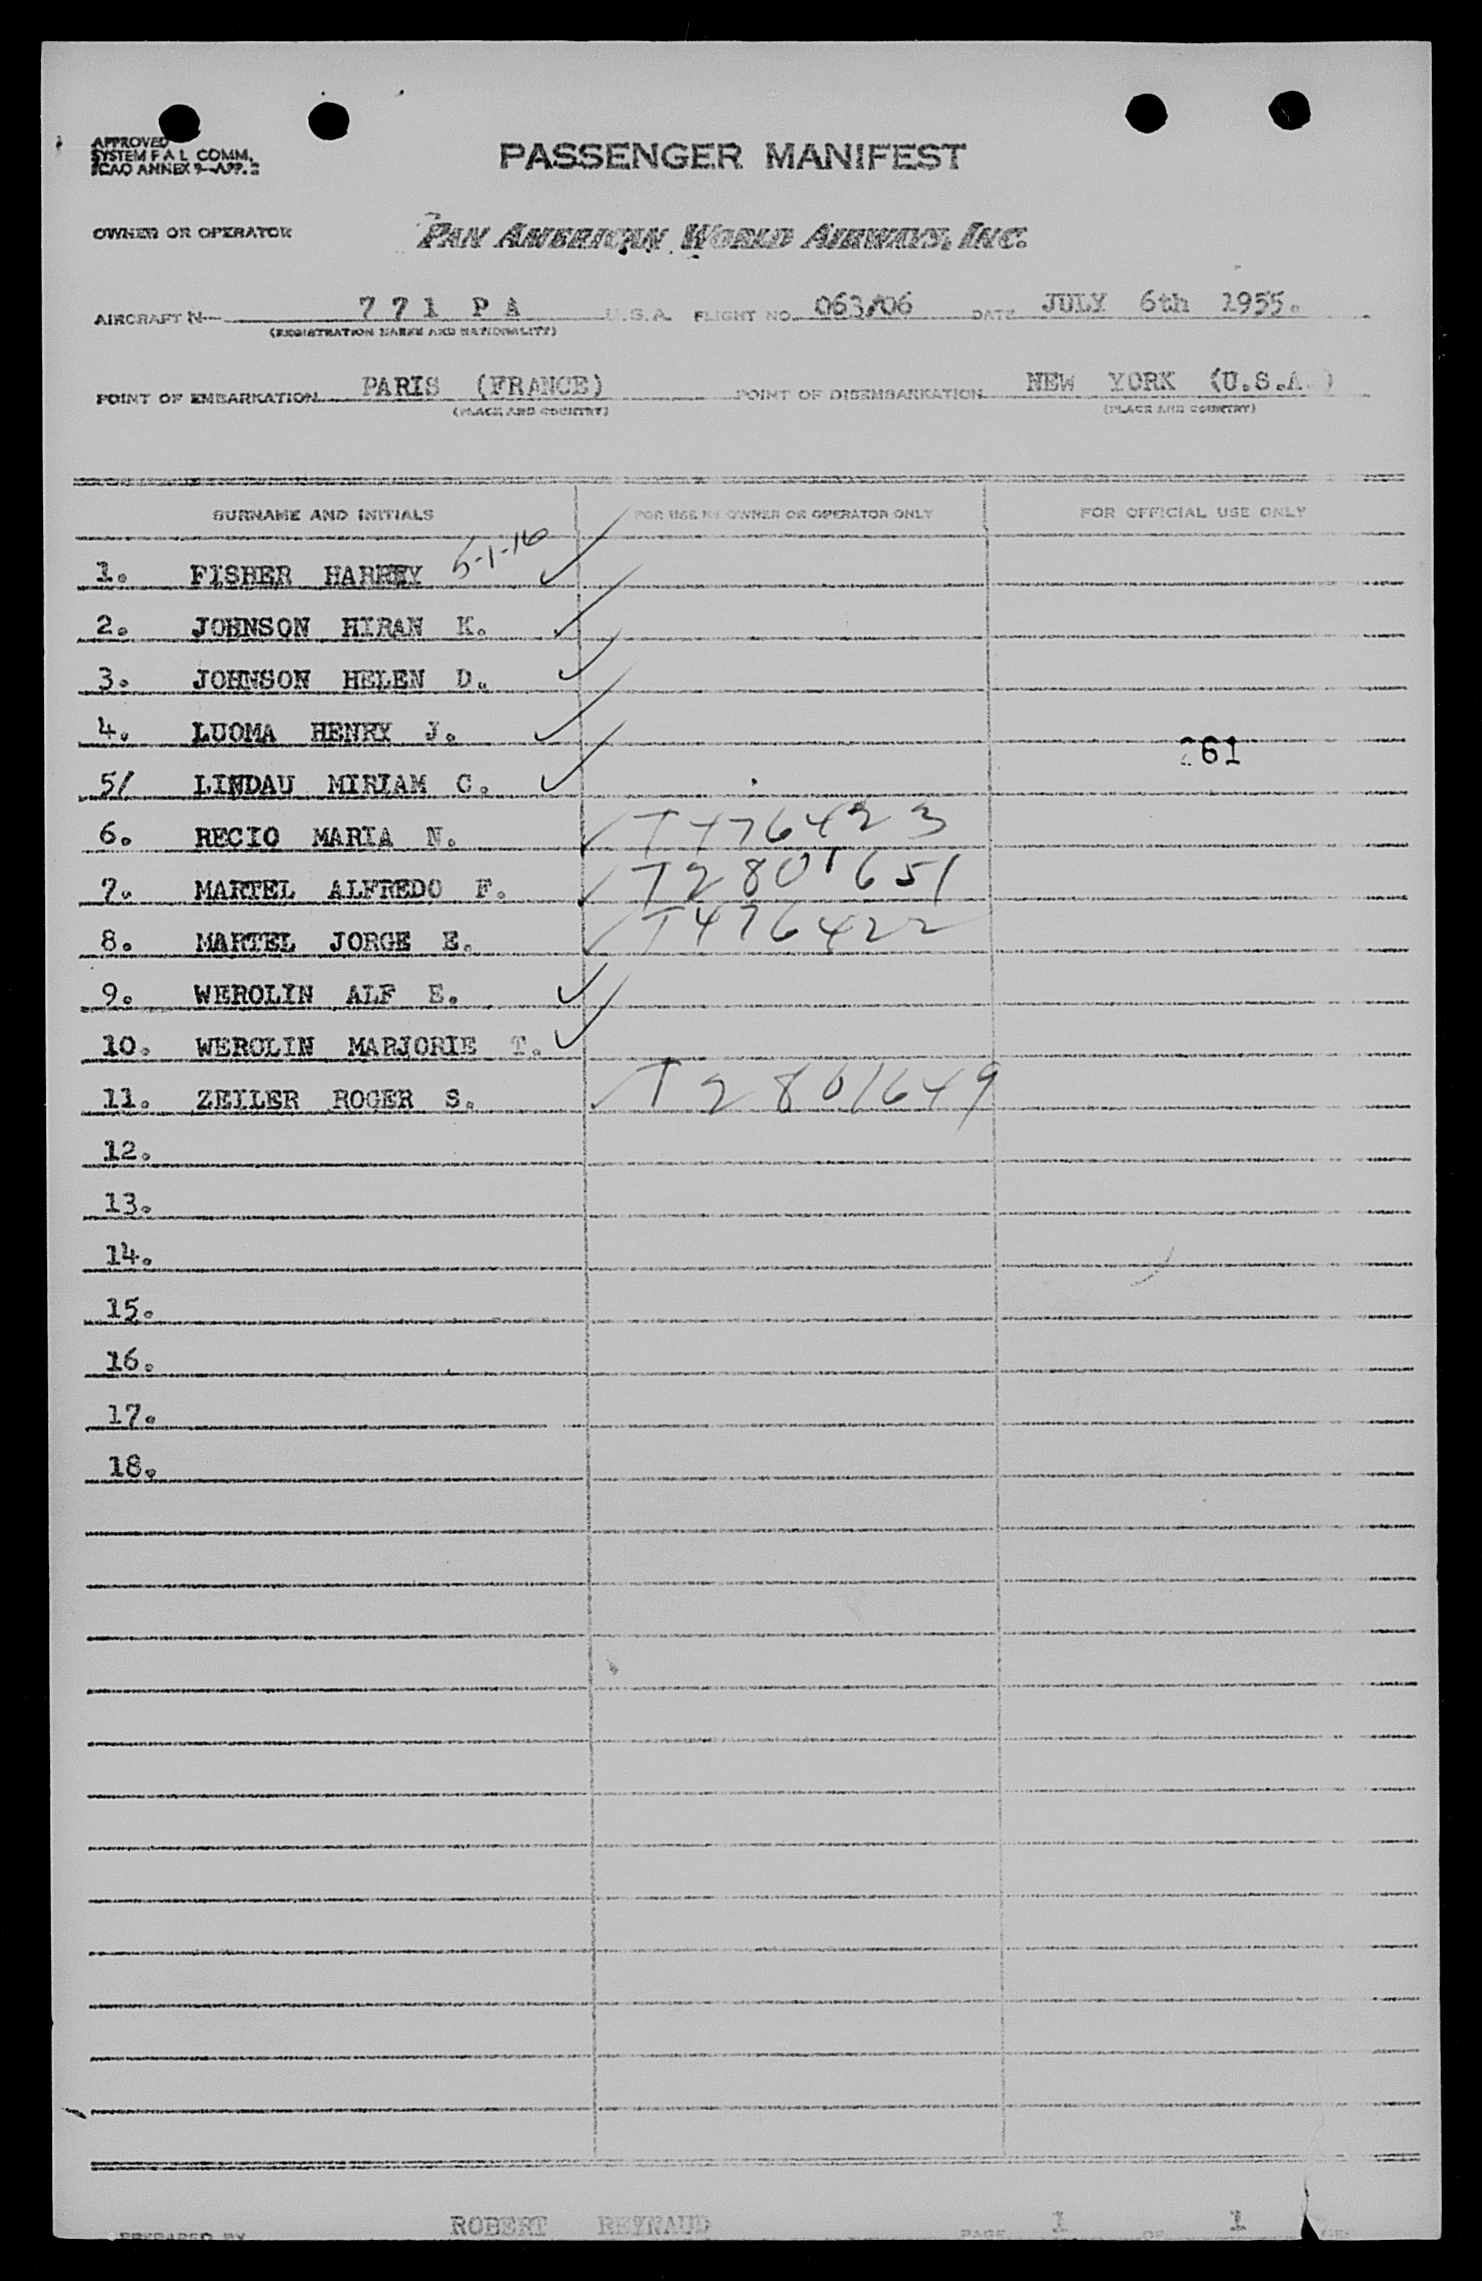 APPROVED
SYSTEM F A L COMM.
ICAO ANNEX 9-APP. 2
PASSENGER MANIFEST
OWNER OR OPERATOR PAN AMERICAN WORLD AIRWAYS, INC.
AIRCRAFT N- 7 7 1 P A U.S.A. FLIGHT NO. 063/06 DATE JULY 6th 1955.
(REGISTRATION MARKS AND NATIONALITY)
POINT OF EMBARKATION PARIS (FRANCE) POINT OF DISEMBARKATION NEW YORK (U.S.A.)
(PLACE AND COUNTRY) (PLACE AND COUNTRY)
SURNAME AND INITIALS FOR USE BY OWNER OR OPERATOR ONLY FOR OFFICIAL USE ONLY
1. FISHER HARRY 5-1-16 ✓
2. JOHNSON HIRAN K. ✓
3. JOHNSON HELEN D. ✓
4. LUOMA HENRY J. ✓
261
5/ LINDAU MIRIAM C. ✓
6. RECIO MARIA N. ✓ T476423
7. MARTEL ALFREDO F. ✓ T2801651
8. MARTEL JORGE E. ✓ T476422
9. WEROLIN ALF E. ✓
10. WEROLIN MARJORIE T. ✓
11. ZEILER ROGER S. ✓ T2801649
12.
13.
14.
15.
16.
17.
18.
PREPARED BY ROBERT REYNAUD PAGE 1 OF 1